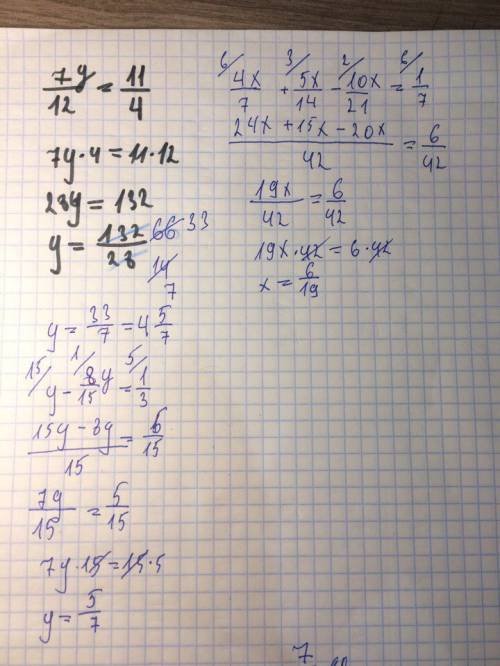 7y/12 = 11/4
7y·4 = 11·12
28y = 132
y = 132/28 66 33
14
7
y = 33/7 = 4 5/7
15/ y - 1/ 8/15 y = 5/ 1/3
15y - 8y / 15 = 5/15
7y/15 = 5/15
7y·15 = 15·5
y = 5/7
6/ 4x/7 + 3/ 5x/14 - 2/ 10x/21 = 6/ 1/7
24x + 15x - 20x / 42 = 6/42
19x/42 = 6/42
19x·42 = 6·42
x = 6/19
7